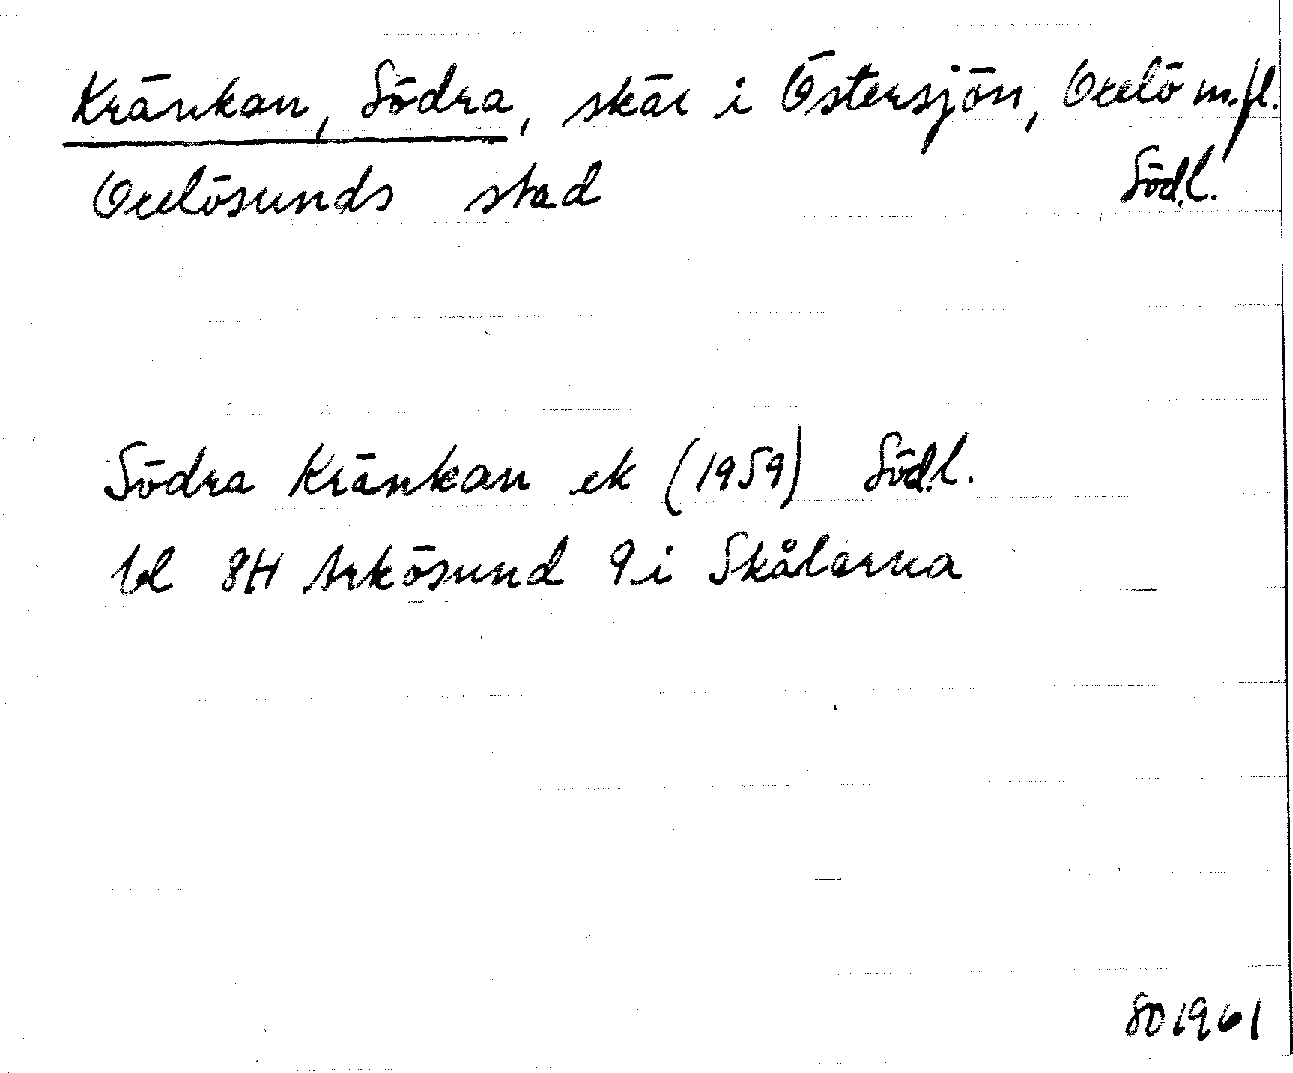 Kränkan, Södra, skär i Östersjön, Oxelö m.fl.
Oxelösunds stad Södl.
Södra Kränkan ek (1959) Södl.
bl 8H Arkösund 9i Skålarna
801961